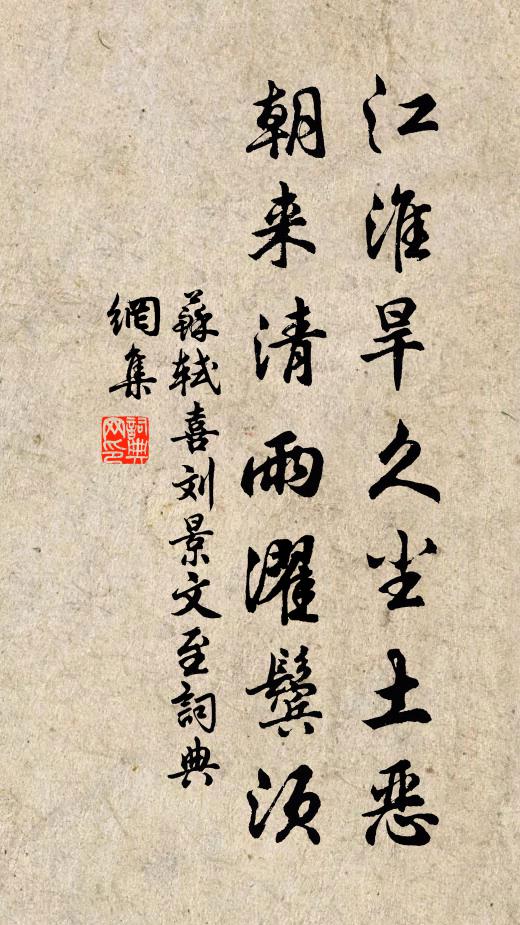 江淮旱久尘土恶
朝来清雨濯鬓须
蘇軾喜刘景文至詞典
網集
詞典
网印